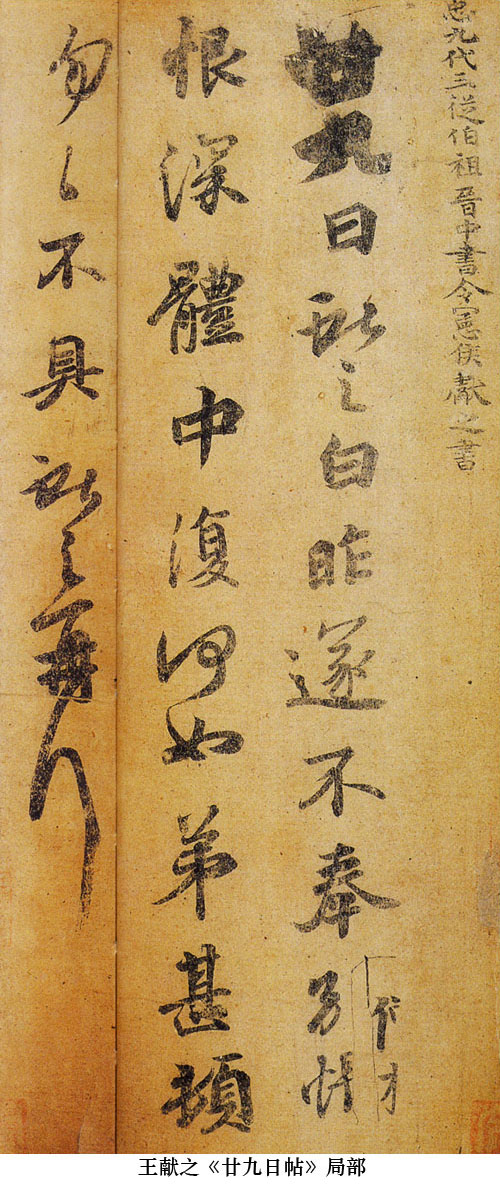 忠九代三從伯祖晉中書令憲侯獻之書
廿九日獻之白昨遂不奉別悵
恨深體中復何如弟甚頓
匆〻不具獻之再拜
王献之《廿九日帖》局部